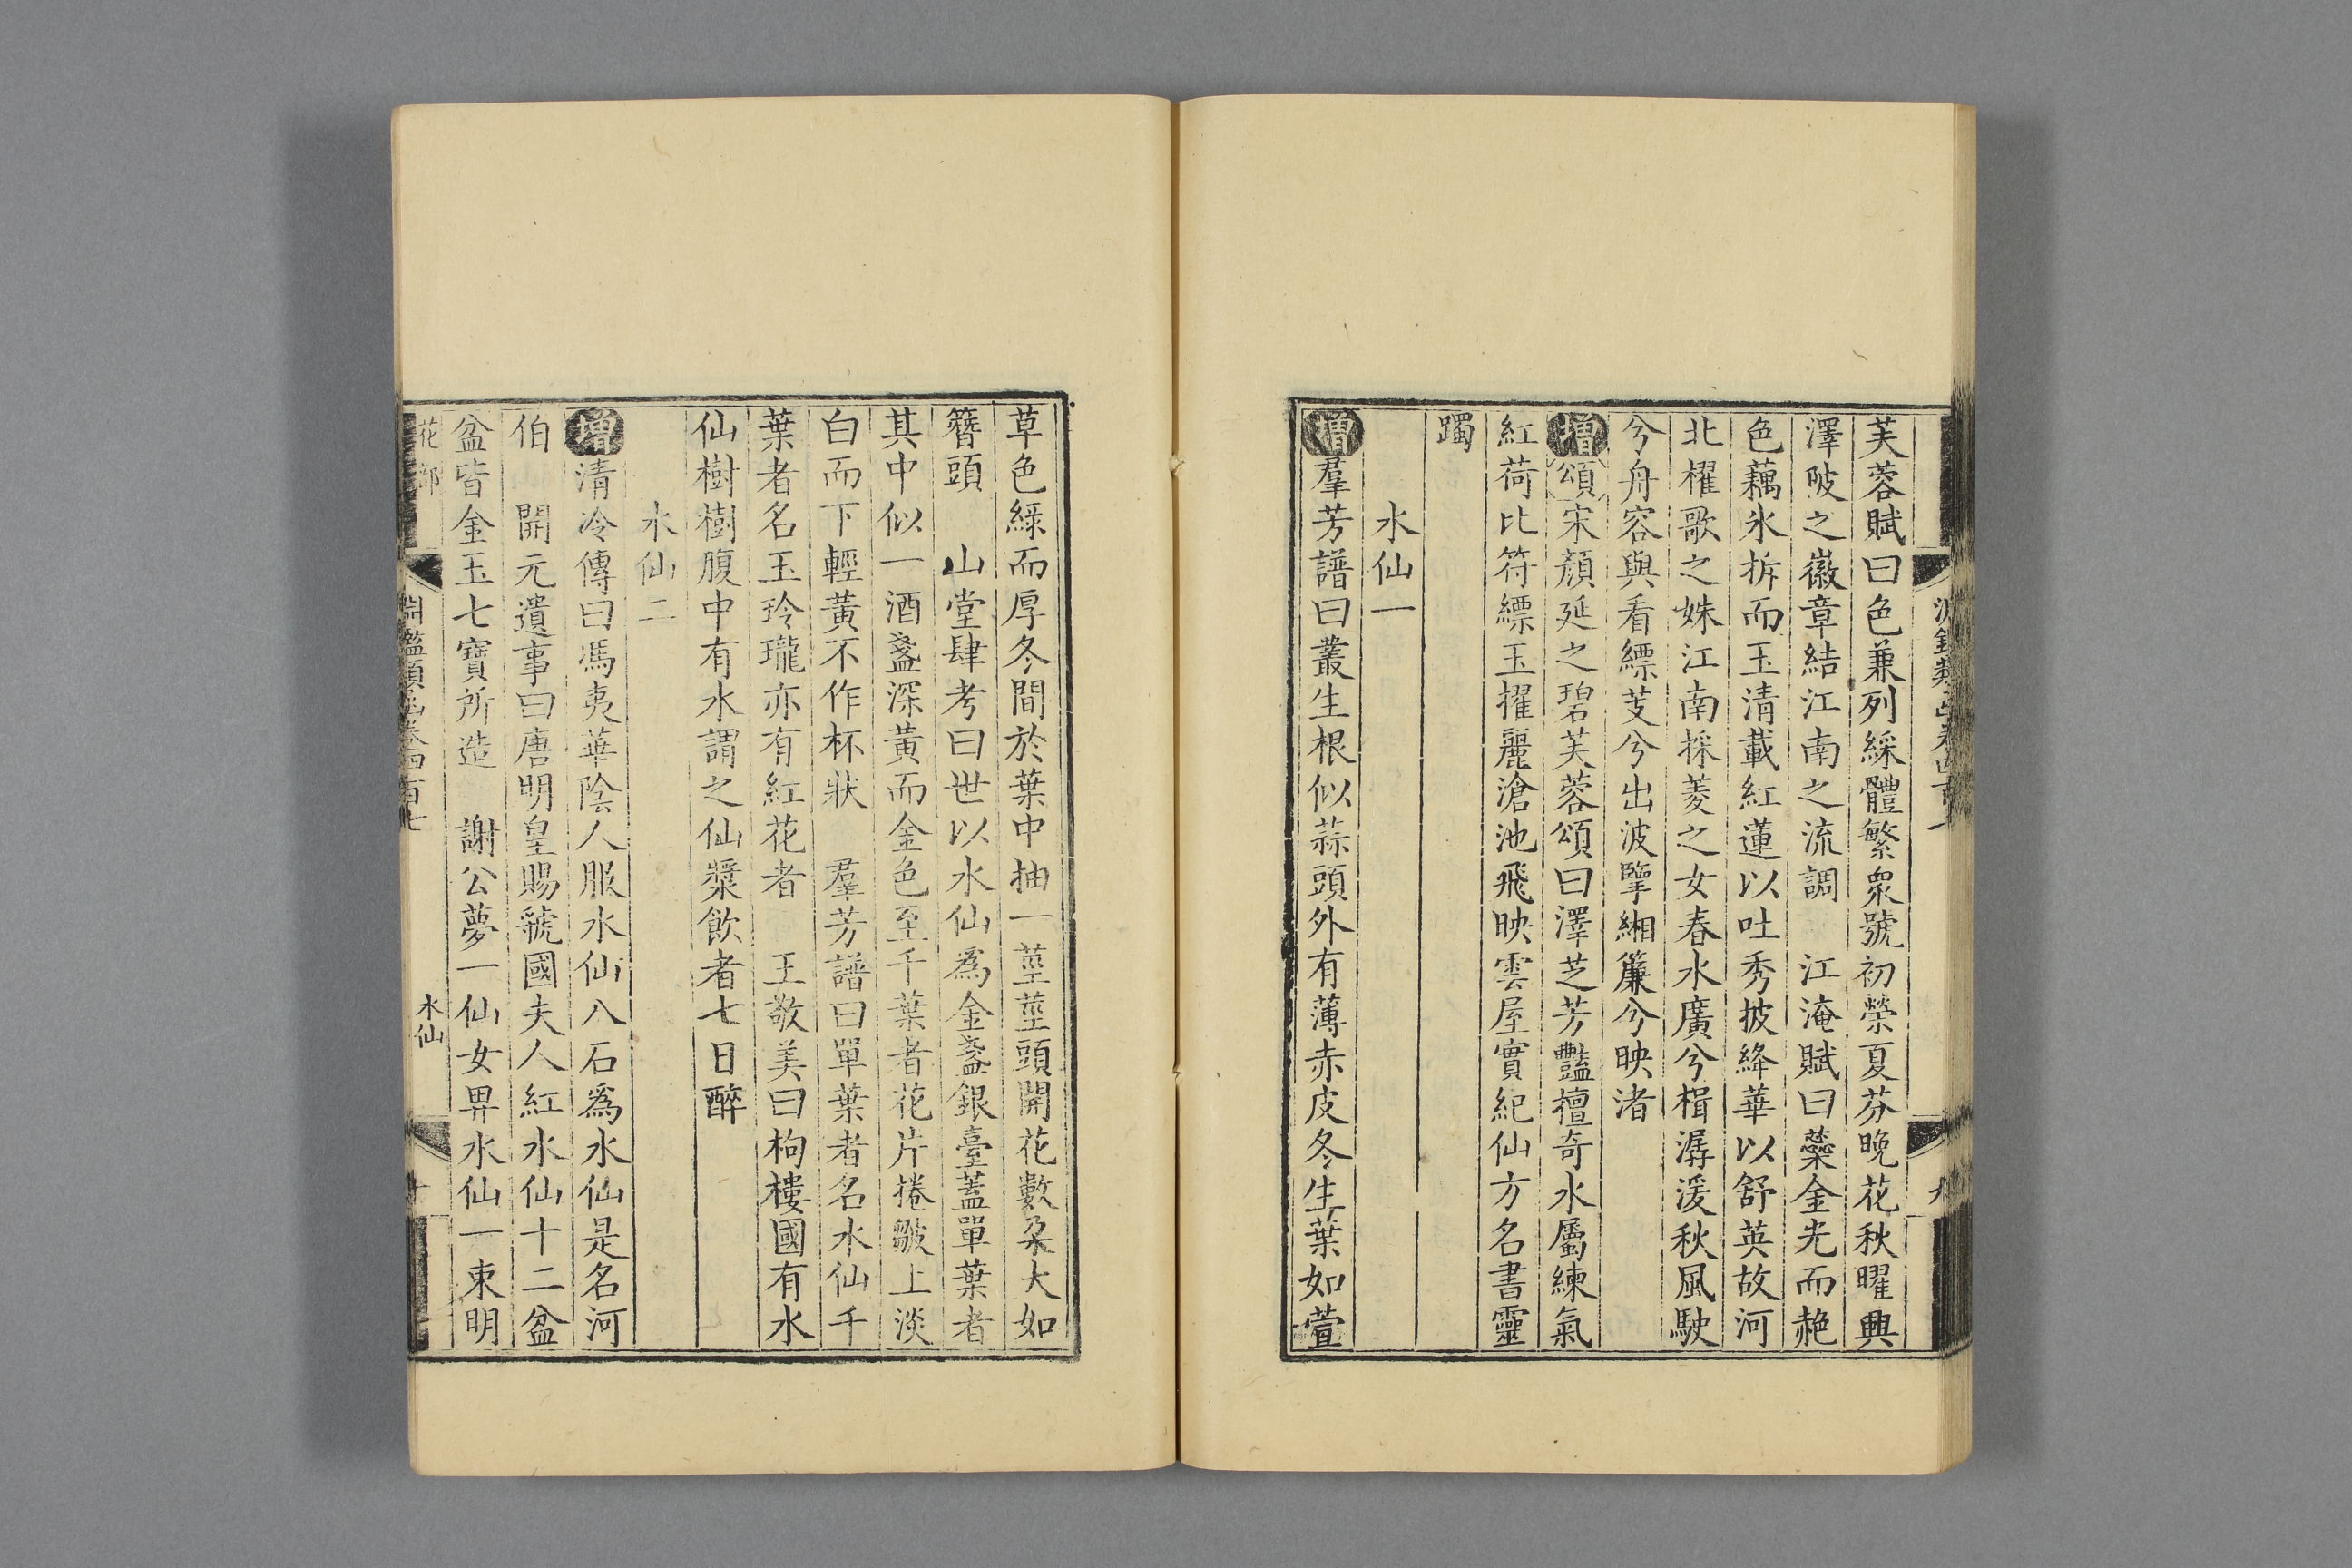 芙蓉賦曰色兼列綵體繁衆號初榮夏芬晚花秋曜興
澤陂之徽章結江南之流調　江淹賦曰蘂金光而艳
色藕氷拆而玉清載紅蓮以吐秀披絳華以舒英故河
北櫂歌之姝江南採菱之女春水廣兮楫潺湲秋風駛
兮舟容與看縹芰兮出波擥緗簾兮映渚
增頌宋顏延之碧芙蓉頌曰澤芝芳豔擅奇水屬練氣
紅荷比符縹玉擢麗滄池飛映雲屋實紀仙方名書靈
躅
水仙一
增羣芳譜曰叢生根似蒜頭外有薄赤皮冬生葉如萱
草色綠而厚冬間於葉中抽一莖莖頭開花數朶大如
簪頭　山堂肆考曰世以水仙爲金盞銀臺蓋單葉者
其中似一酒盞深黃而金色至千葉者花片捲皺上淡
白而下輕黃不作杯狀　羣芳譜曰單葉者名水仙千
葉者名玉玲瓏亦有紅花者　王敬美曰枸樓國有水
仙樹樹腹中有水謂之仙漿飲者七日醉
水仙二
增清冷傳曰馮夷華陰人服水仙八石爲水仙是名河
伯　開元遺事曰唐明皇賜虢國夫人紅水仙十二盆
盆皆金玉七寶所造　謝公夢一仙女畀水仙一束明
花部
淵鑑類函卷四百七
水仙
十